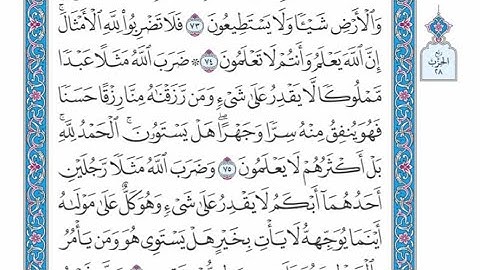 وَٱلۡأَرۡضِ شَيۡـٔٗا وَلَا يَسۡتَطِيعُونَ ٧٣ فَلَا تَضۡرِبُواْ لِلَّهِ ٱلۡأَمۡثَالَۚ
إِنَّ ٱللَّهَ يَعۡلَمُ وَأَنتُمۡ لَا تَعۡلَمُونَ ٧٤ ۞ ضَرَبَ ٱللَّهُ مَثَلًا عَبۡدٗا
مَّمۡلُوكٗا لَّا يَقۡدِرُ عَلَىٰ شَيۡءٖ وَمَن رَّزَقۡنَٰهُ مِنَّا رِزۡقًا حَسَنٗا
فَهُوَ يُنفِقُ مِنۡهُ سِرّٗا وَجَهۡرًاۖ هَلۡ يَسۡتَوُۥنَۚ ٱلۡحَمۡدُ لِلَّهِۚ
بَلۡ أَكۡثَرُهُمۡ لَا يَعۡلَمُونَ ٧٥ وَضَرَبَ ٱللَّهُ مَثَلٗا رَّجُلَيۡنِ
أَحَدُهُمَآ أَبۡكَمُ لَا يَقۡدِرُ عَلَىٰ شَيۡءٖ وَهُوَ كَلٌّ عَلَىٰ مَوۡلَىٰهُ
أَيۡنَمَا يُوَجِّههُّ لَا يَأۡتِ بِخَيۡرٍ هَلۡ يَسۡتَوِي هُوَ وَمَن يَأۡمُرُ
ربع
الحزب
٢٨